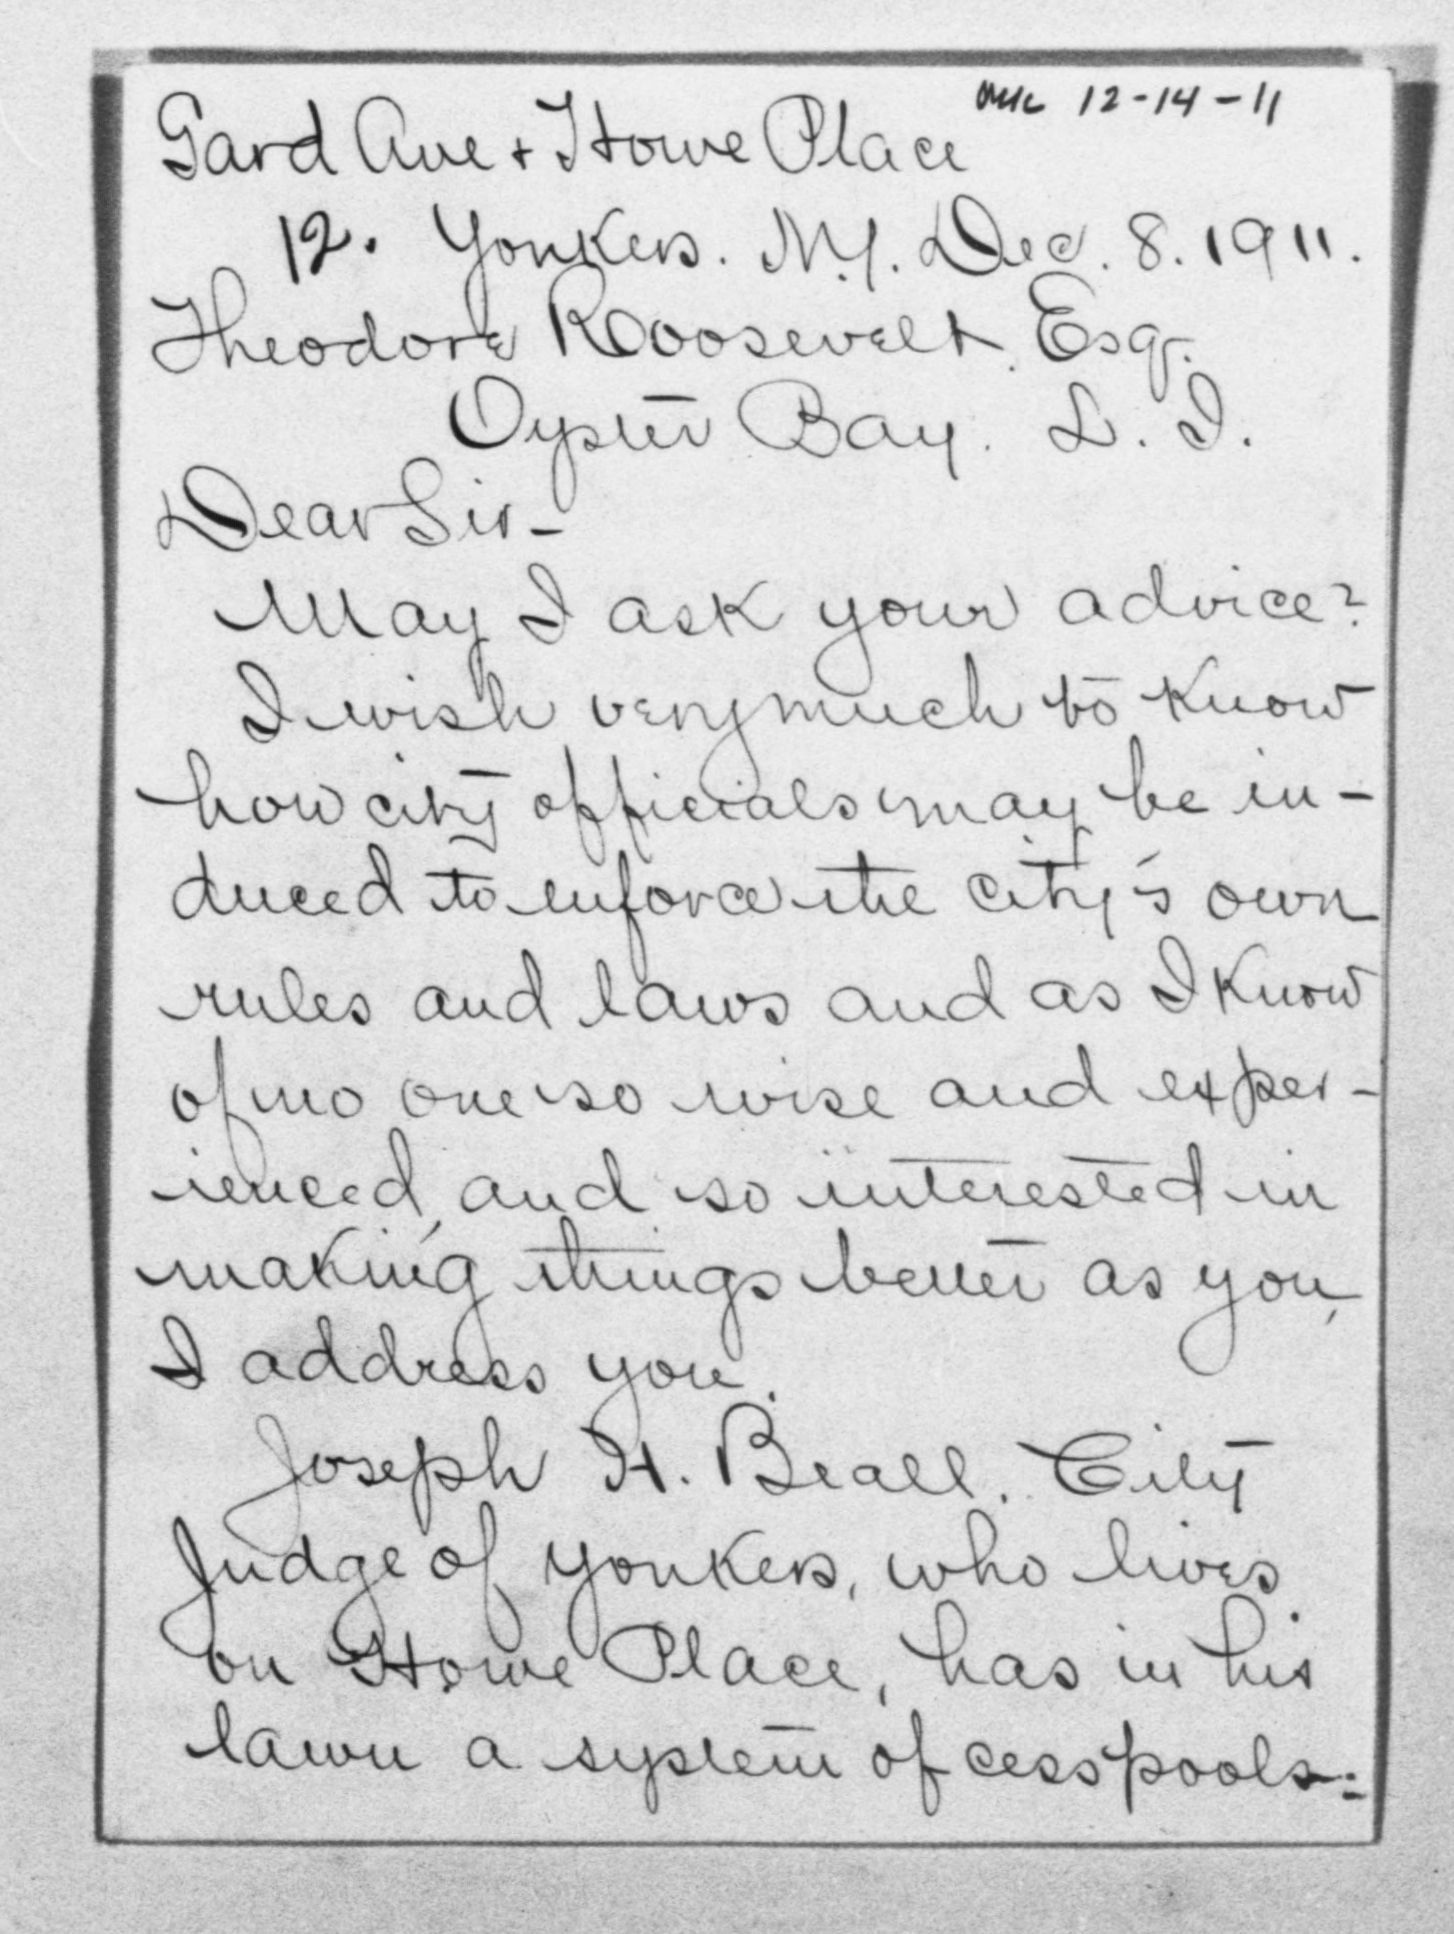 12-14-11
Gard Ave + Howe Place
12. Yonkers. N.Y. Dec. 8. 1911.
Theodore Roosevelt. Esq.
Oyster Bay. L. I.
Dear Sir-
May I ask your advice?
I wish very much to know
how city officials may be in-
duced to enforce the city's own
rules and laws and as I know
of no one so wise and exper-
ienced, and so interested in
making things better as you,
I address you.
Joseph H. Beall. City
Judge of Yonkers, who lives
on Howe Place, has in his
lawn a system of cesspools: